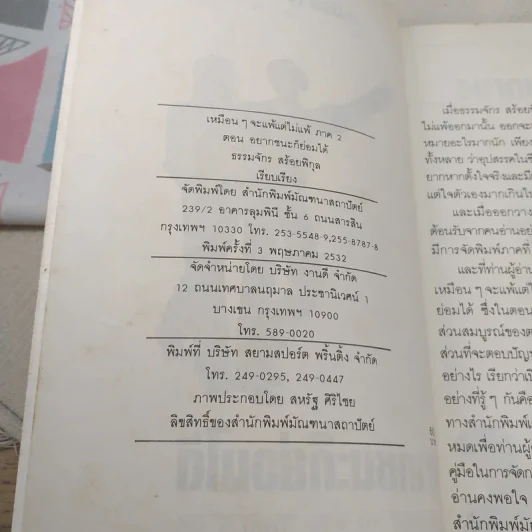 เหมือน ๆ จะแพ้แต่ไม่แพ้ ภาค 2
ตอน อยากชนะก็ย่อมได้
ธรรมจักร สร้อยพิกุล
เรียบเรียง
จัดพิมพ์โดย สำนักพิมพ์มัณฑนาสถาปัตย์
239/2 อาคารลุมพินี ชั้น 6 ถนนสารสิน
กรุงเทพฯ 10330 โทร. 253-5548-9,255-8787-8
พิมพ์ครั้งที่ 3 พฤษภาคม 2532
จัดจำหน่ายโดย บริษัท งานดี จำกัด
12 ถนนเทศบาลนฤมาล ประชานิเวศน์ 1
บางเขน กรุงเทพฯ 10900
โทร. 589-0020
พิมพ์ที่ บริษัท สยามสปอร์ต พริ้นติ้ง จำกัด
โทร. 249-0295, 249-0447
ภาพประกอบโดย สหรัฐ ศิริไชย
ลิขสิทธิ์ของสำนักพิมพ์มัณฑนาสถาปัตย์
เมื่อธรรมจักร สร้อย
ไม่แพ้ออกมานั้น ออกจะ
หมายอะไรมากนัก เพียง
ทั้งหลาย ว่าอุปสรรคในชี
ยากหากตั้งใจจริงและมี
แต่ใจตัวเองมากเกินไ
และเมื่อออกวาง
ต้อนรับจากคนอ่านอย่
มีการจัดพิมพ์ภาคที่
และที่ท่านผู้อ่าน
เหมือน ๆ จะแพ้แต่ไ
ย่อมได้ ซึ่งในตอน
ส่วนสมบูรณ์ของต
ส่วนที่จะตอบปัญ
อย่างไร เรียกว่าเป็
อย่างที่รู้ ๆ กันคือ
ทางสำนักพิมพ์เ
หมดเพื่อท่านผู้
คู่มือในการจัดก
อ่านคงพอใจ
สำนักพิมพ์มั